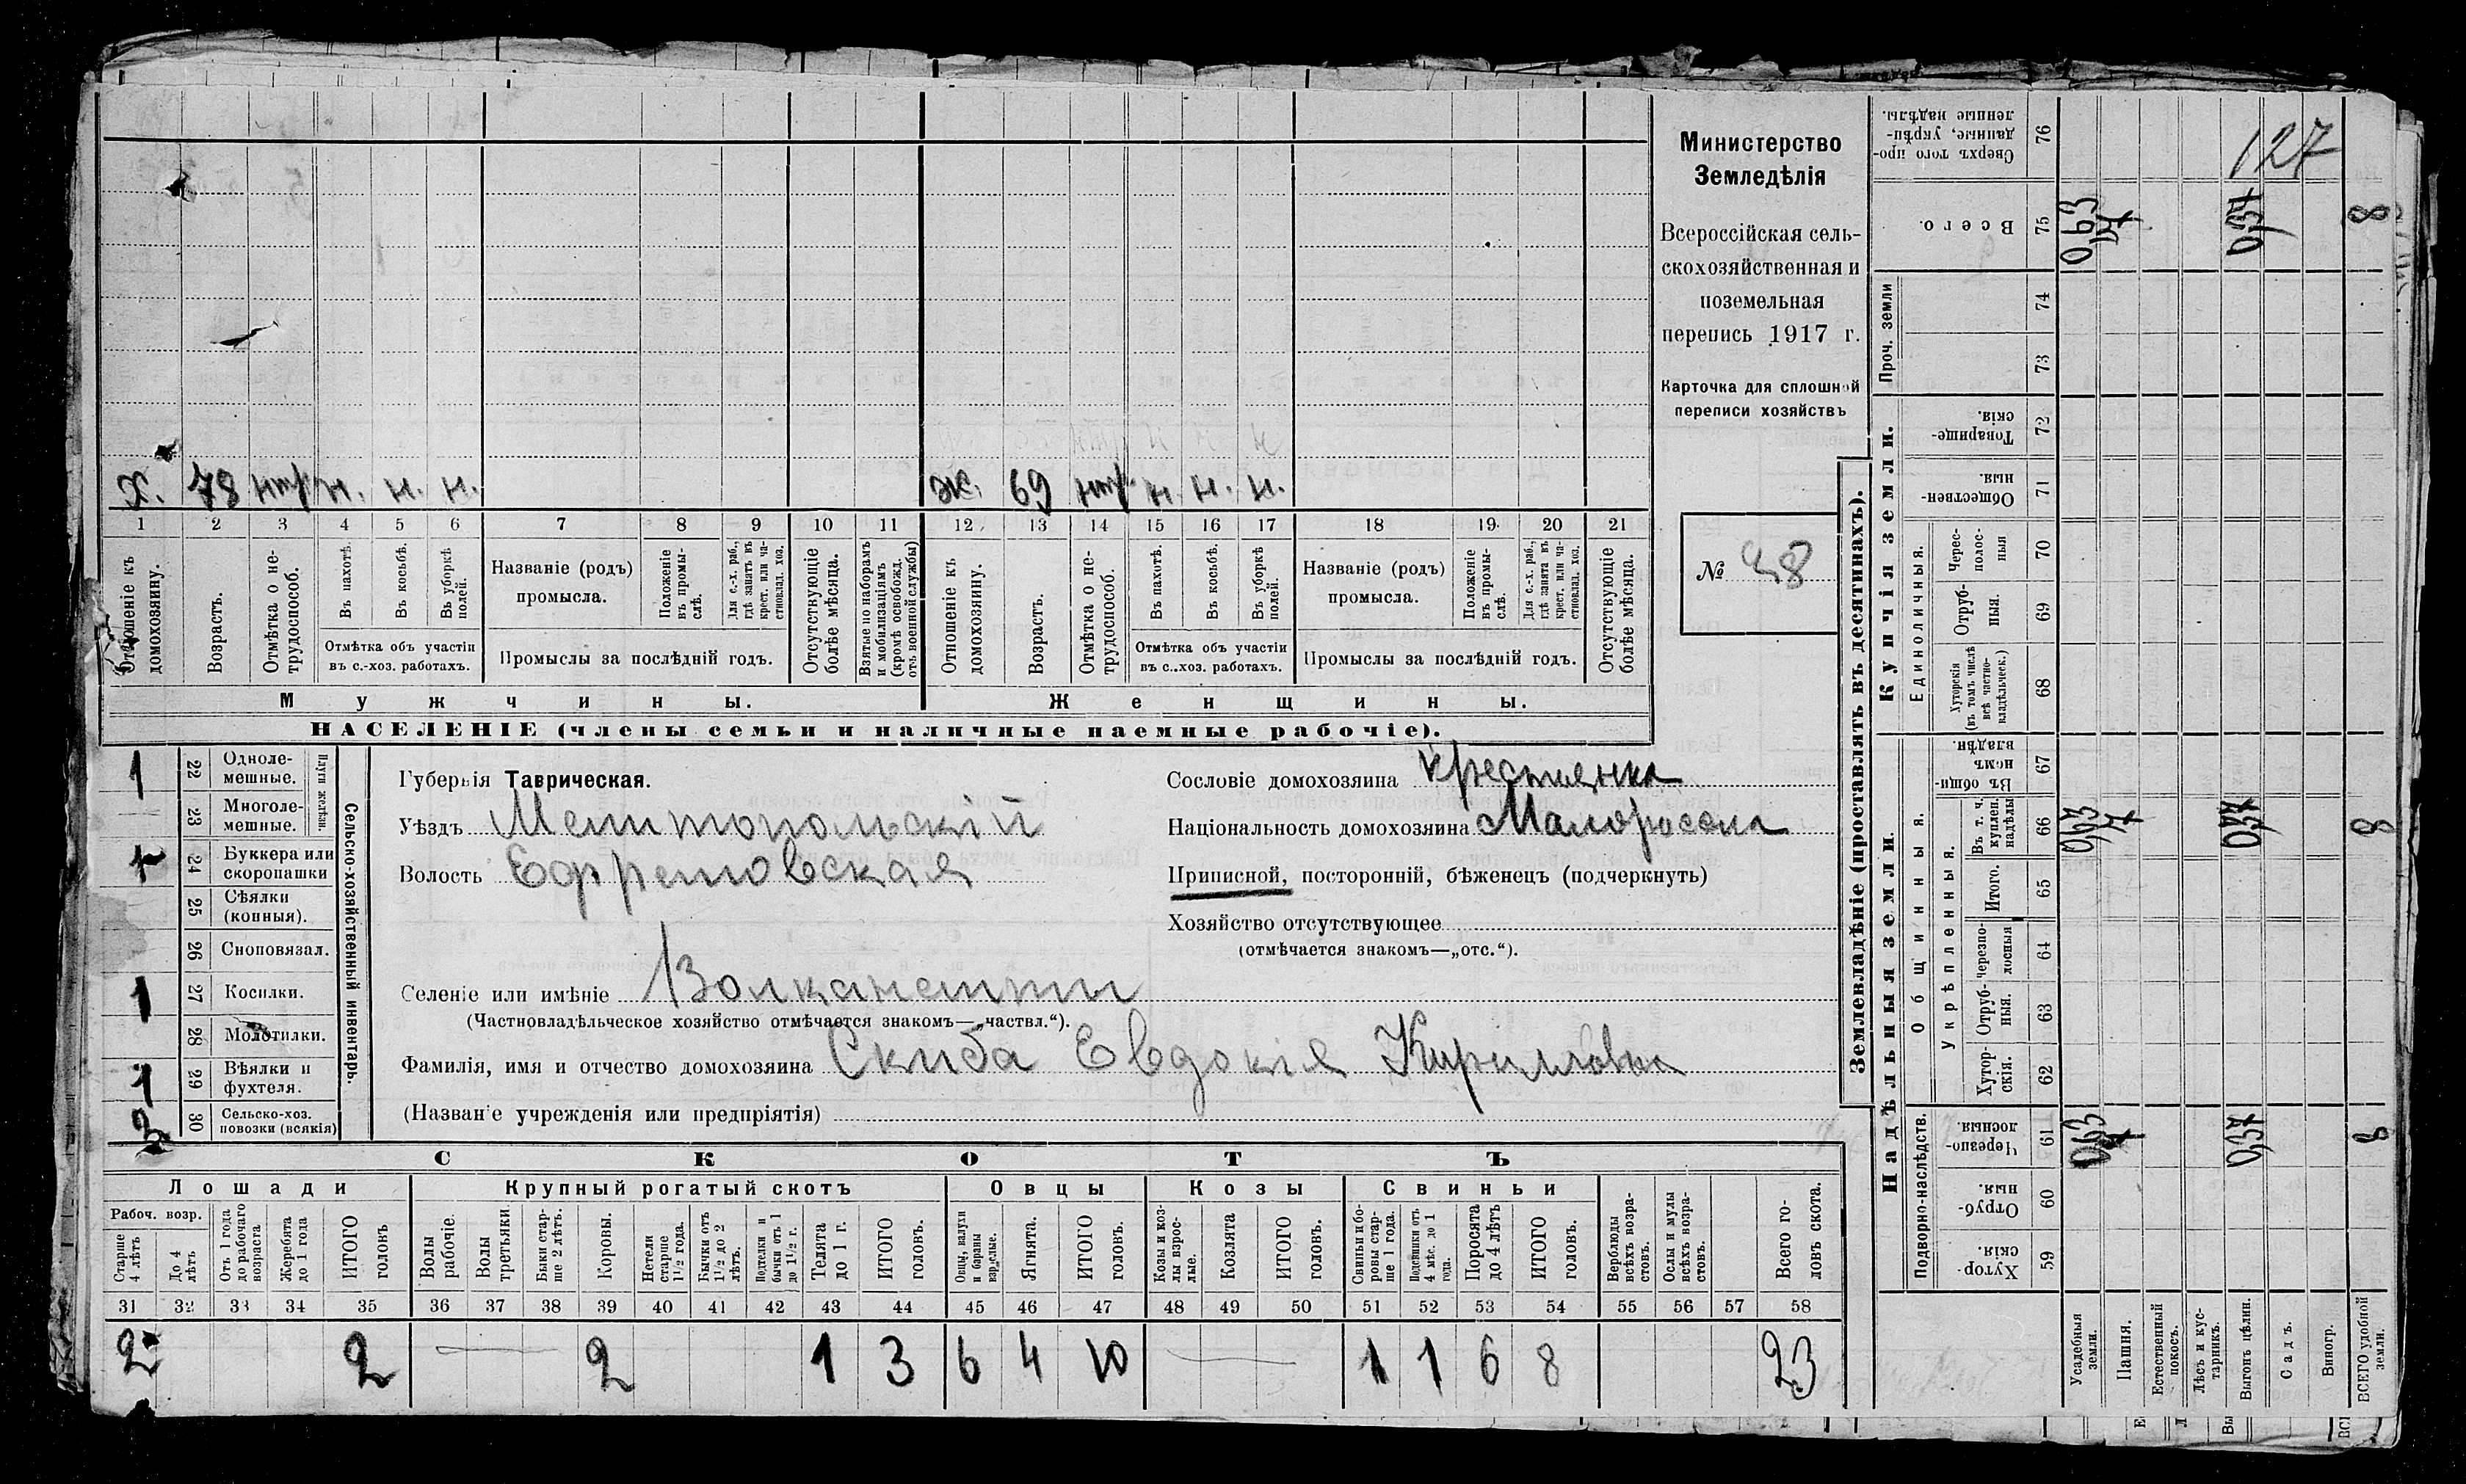 Министерство
Земледѣлія
Всероссійская сель-
скохозяйственная и
поземельная
перепись 1917 г.
Карточка для сплошной
переписи хозяйствъ
№ 48
127
х. 78 нтр н. н. н. ж. 69 нтр. н. н. н.
1 2 3 4 5 6 7 8 9 10 11 12 13 14 15 16 17 18 19 20 21
Отношеніе къ домохозяину.
Возрастъ.
Отмѣтка о не-трудоспособ.
Въ пахотѣ.
Въ косьбѣ.
Въ уборкѣ полей.
Отмѣтка объ участіи
въ с.-хоз. работахъ.
Названіе (родъ)
промысла.
Положеніе въ промы-слѣ.
Для с.-х. раб., гдѣ занятъ въ крест. или ча-стновлад. хоз.
Промыслы за послѣдній годъ.
Отсутствующіе болѣе мѣсяца.
Взятые по наборамъ и мобилизаціямъ (кромѣ освобожд. отъ военной службы)
Отношеніе къ домохозяину.
Возрастъ.
Отмѣтка о не-трудоспособ.
Въ пахотѣ.
Въ косьбѣ.
Въ уборкѣ полей.
Отмѣтка объ участіи
въ с..хоз. работахъ.
Названіе (родъ)
промысла.
Положеніе въ промы-слѣ.
Для с.-х. раб., гдѣ занята въ крест. или ча-стновлад. хоз.
Промыслы за послѣдній годъ.
Отсутствующіе болѣе мѣсяца.
Мужчины. Женщины.
НАСЕЛЕНІЕ (члены семьи и наличные наемные рабочіе).
Сельско-хозяйственный инвентарь.
Плуги желѣзн.
1 22 Одноле-мешные.
23 Многоле-мешные.
24 Буккера или скоропашки
25 Сѣялки (конныя).
26 Сноповязал.
1 27 Косилки.
28 Молотилки.
1 29 Вѣялки и фухтеля.
30 Сельско-хоз. повозки (всякія)
Губернія Таврическая.
Уѣздъ Мелитопольскій
Волость Ефремовская
Селеніе или имѣніе Волканешты
(Частновладѣльческое хозяйство отмѣчается знакомъ—„частвл.“).
Фамилія, имя и отчество домохозяина Скиба Евдокія Кирилловна
(Названіе учрежденія или предпріятія)
Сословіе домохозяина крестьянка
Національность домохозяина Малоросска
Приписной, посторонній, бѣженецъ (подчеркнуть)
Хозяйство отсутствующее
(отмѣчается знакомъ—„отс.“).
СКОТЪ
Лошади Крупный рогатый скотъ Овцы Козы Свиньи
Рабоч. возр.
Старше 4 лѣтъ
До 4 лѣтъ
Отъ 1 года до рабочаго возраста
Жеребята до 1 года
ИТОГО головъ
Волы рабочіе.
Волы третьяки.
Быки стар-ше 2 лѣтъ.
Коровы.
Нетели старше 1½ года.
Бычки отъ 1½ до 2 лѣтъ.
Подтелки и бычки отъ 1 до 1½ г.
Телята до 1 г.
ИТОГО головъ.
Овцы, валухи и бараны взрослые.
Ягнята.
ИТОГО головъ.
Козы и коз-лы взрос-лые.
Козлята
ИТОГО головъ.
Свиньи и бо-ровы стар-ше 1 года.
Подсвинки отъ 4 мѣс. до 1 года.
Поросята до 4 лѣтъ
ИТОГО головъ.
Верблюды всѣхъ возра-стовъ.
Ослы и мулы всѣхъ возра-стовъ.
Всего го-ловъ скота.
31 32 33 34 35 36 37 38 39 40 41 42 43 44 45 46 47 48 49 50 51 52 53 54 55 56 57 58
2 2 — 2 1 3 6 4 10 — 1 1 6 8 23
Землевладѣніе (проставлять въ десятинахъ).
Надѣльныя земли. Купчія земли. Проч. земли
Подворно-наслѣдств.
Общинныя.
Укрѣпленныя.
Единоличныя.
59 Хутор-скія.
60 Отруб-ныя.
61 Черезпо-лосныя. 0,63 7 0,37 8
62 Хутор-скія.
63 Отруб-ныя.
64 Черезпо-лосныя
65 Итого.
66 Въ т. ч. куплен. надѣлы 0,63 7 0,37 8
67 Въ общин-номъ владѣн.
68 Хуторскія (въ томъ числѣ всѣ частно-владѣльческ.)
69 Отруб-ныя.
70 Черес-полос-ныя
71 Обществен-ныя.
72 Товарище-скія.
73
74
75 Всего. 0,63 7 0,37 8
76 Сверхъ того про-данные, укрѣп-ленные надѣлы.
Усадебныя земли.
Пашня.
Естественный покосъ.
Лѣсъ и кус-тарникъ.
Выгонъ цѣлин.
Садъ.
Виногр.
ВСЕГО удобной земли.